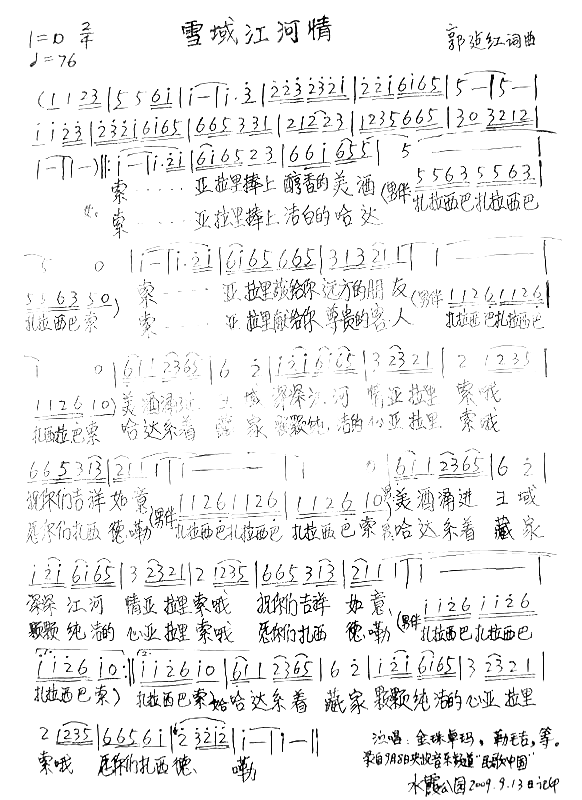 雪域江河情
1=D 2/4
♩=76
郭延红词曲
(1 1 2 3 | 5 5 6 i | i — | i · 3 | 2 2 3 2 3 2 i | 2 2 i 6 i 6 5 | 5 — | 5 — |
i i 2 3 | 2 3 2 i 6 i 6 5 | 6 6 5 3 3 1 | 2 1 2 2 3 | 1 2 3 5 6 6 5 | 3 0 3 2 1 2 |
1 — | 1 — ) ‖: i — | i · 2 i | 6 i 6 5 2 3 | 6 6 i 5 5 | 5 — |
索 · · · · 亚拉里捧上 醇香的美酒 (男伴 5 5 6 3 5 5 6 3
索 · · · · 亚拉里捧上 洁白的哈达 扎拉西巴扎拉西巴
5 0 | i — | i · 2 i | 6 i 6 5 6 6 5 | 3 1 3 2 1 | 1 — |
5 5 6 3 5 0 ) 索 · · · · 亚拉里敬给你远方的朋友 (男伴 1 1 2 6 1 1 2 6
扎拉西巴索 索 · · · · 亚拉里献给你尊贵的客人 扎拉西巴扎拉西巴
1 0 | 6 i i 2 3 6 5 | 6 2 | i 2 i 6 i 6 5 | 3 2 3 2 1 | 2 1 2 3 5 |
1 1 2 6 1 0 ) 美酒涌进 王域 深深江河 情亚拉里 索哦
扎西拉巴索 哈达系着 藏家 颗颗纯洁的心亚拉里 索哦
6 6 5 3 1 3 | 2 1 1 1 | 1 — | 1 0 | 6 i i 2 3 6 5 | 6 2 |
祝你们吉祥如意 (男伴 1 1 2 6 1 1 2 6 | 1 1 2 6 1 0 ) 美酒涌进 王域
愿你们扎西德嘞 扎拉西巴扎拉西巴 扎拉西巴索 哈达系着 藏家
i 2 i 6 i 6 5 | 3 2 3 2 1 | 2 1 2 3 5 | 6 6 5 3 1 3 | 2 1 1 1 | 1 — |
深深江河 情亚拉里索哦 祝你们吉祥 如意 (男伴 i i 2 6 i i 2 6
颗颗纯洁的 心亚拉里索哦 愿你们扎西 德嘞 扎拉西巴扎拉西巴
i i 2 6 i 0 :‖ i i 2 6 i 0 | 6 i i 2 3 6 5 | 6 2 | i 2 i 6 i 6 5 | 3 2 3 2 1 |
扎拉西巴索) 扎拉西巴索) 哈达系着 藏家 颗颗纯洁的心亚拉里
2 1 2 3 5 | 6 6 5 6 i | 2 3 2 i 2 | i — | i — ‖
索哦 愿你们扎西德 嘞
演唱:金珠卓玛,勒毛吉,等。
采自9月8日央视音乐频道"民歌中国"
水霞公园2009.9.13日记